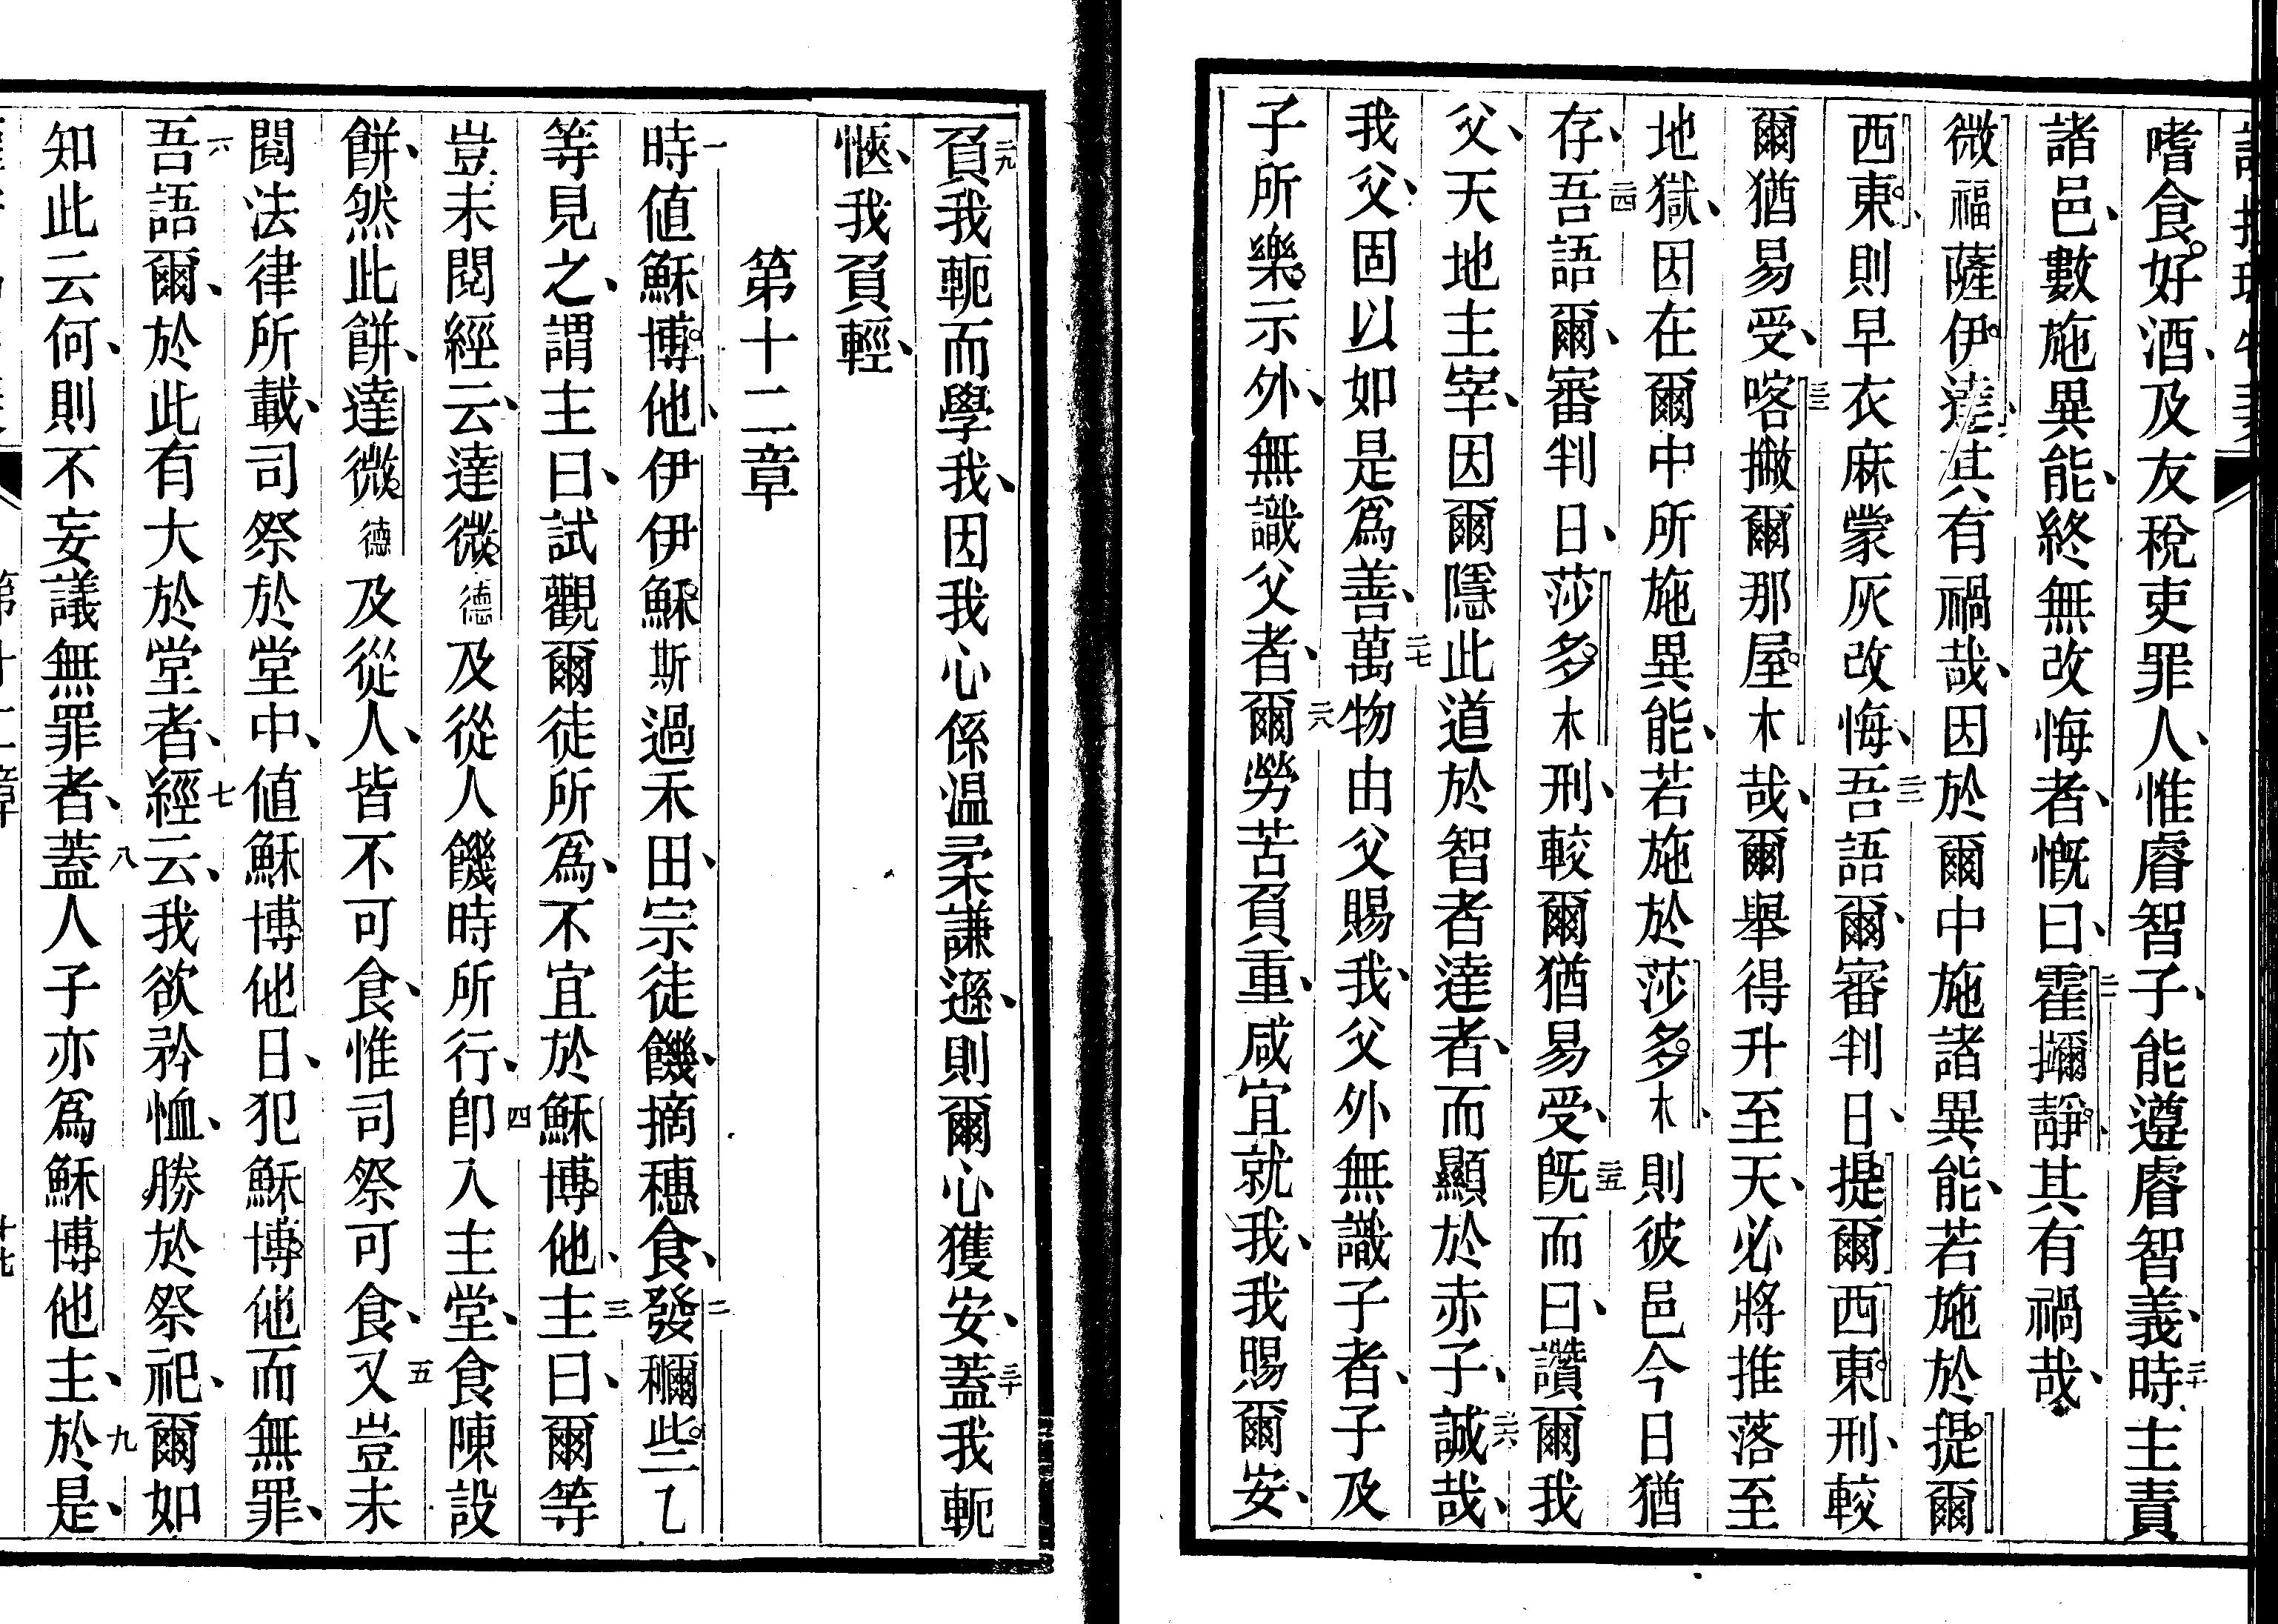 嗜食好酒、及友稅吏罪人、惟睿智子、能遵睿智義、二十時主責
諸邑、數施異能、終無改悔者、慨曰、二一霍擟靜、其有禍哉、
微福薩伊達、其有禍哉、因於爾中施諸異能、若施於提爾
西東、則早衣麻蒙灰改悔、二二吾語爾、審判日、提爾西東刑、較
爾猶易受、二三喀撇爾那屋木哉、爾舉得升至天、必將推落至
地獄、因在爾中所施異能、若施於莎多木、則彼邑今日猶
存、二四吾語爾、審判日、莎多木刑、較爾猶易受、二五旣而曰、讚爾我
父、天地主宰、因爾隱此道於智者達者、而顯於赤子、二六誠哉、
我父、固以如是爲善、二七萬物由父賜我、父外無識子者、子及
子所樂示外、無識父者、二八爾勞苦負重、咸宜就我、我賜爾安、
二九負我軛而學我、因我心係温柔謙遜、則爾心獲安、三十蓋我軛
愜、我負輕、
第十二章
一時值穌博他、伊伊穌斯過禾田、宗徒饑、摘穗食、二發穪些乙
等見之、謂主曰、試觀爾徒所爲、不宜於穌博他、三主曰、爾等
豈未閱經云、達微德及從人饑時所行、四卽入主堂、食陳設
餅、然此餅、達微德及從人、皆不可食、惟司祭可食、五又豈未
閱法律所載、司祭於堂中、値穌博他日、犯穌博他而無罪、
六吾語爾、於此有大於堂者、七經云、我欲矜恤、勝於祭祀、爾如
知此云何、則不妄議無罪者、八蓋人子亦爲穌博他主、九於是、